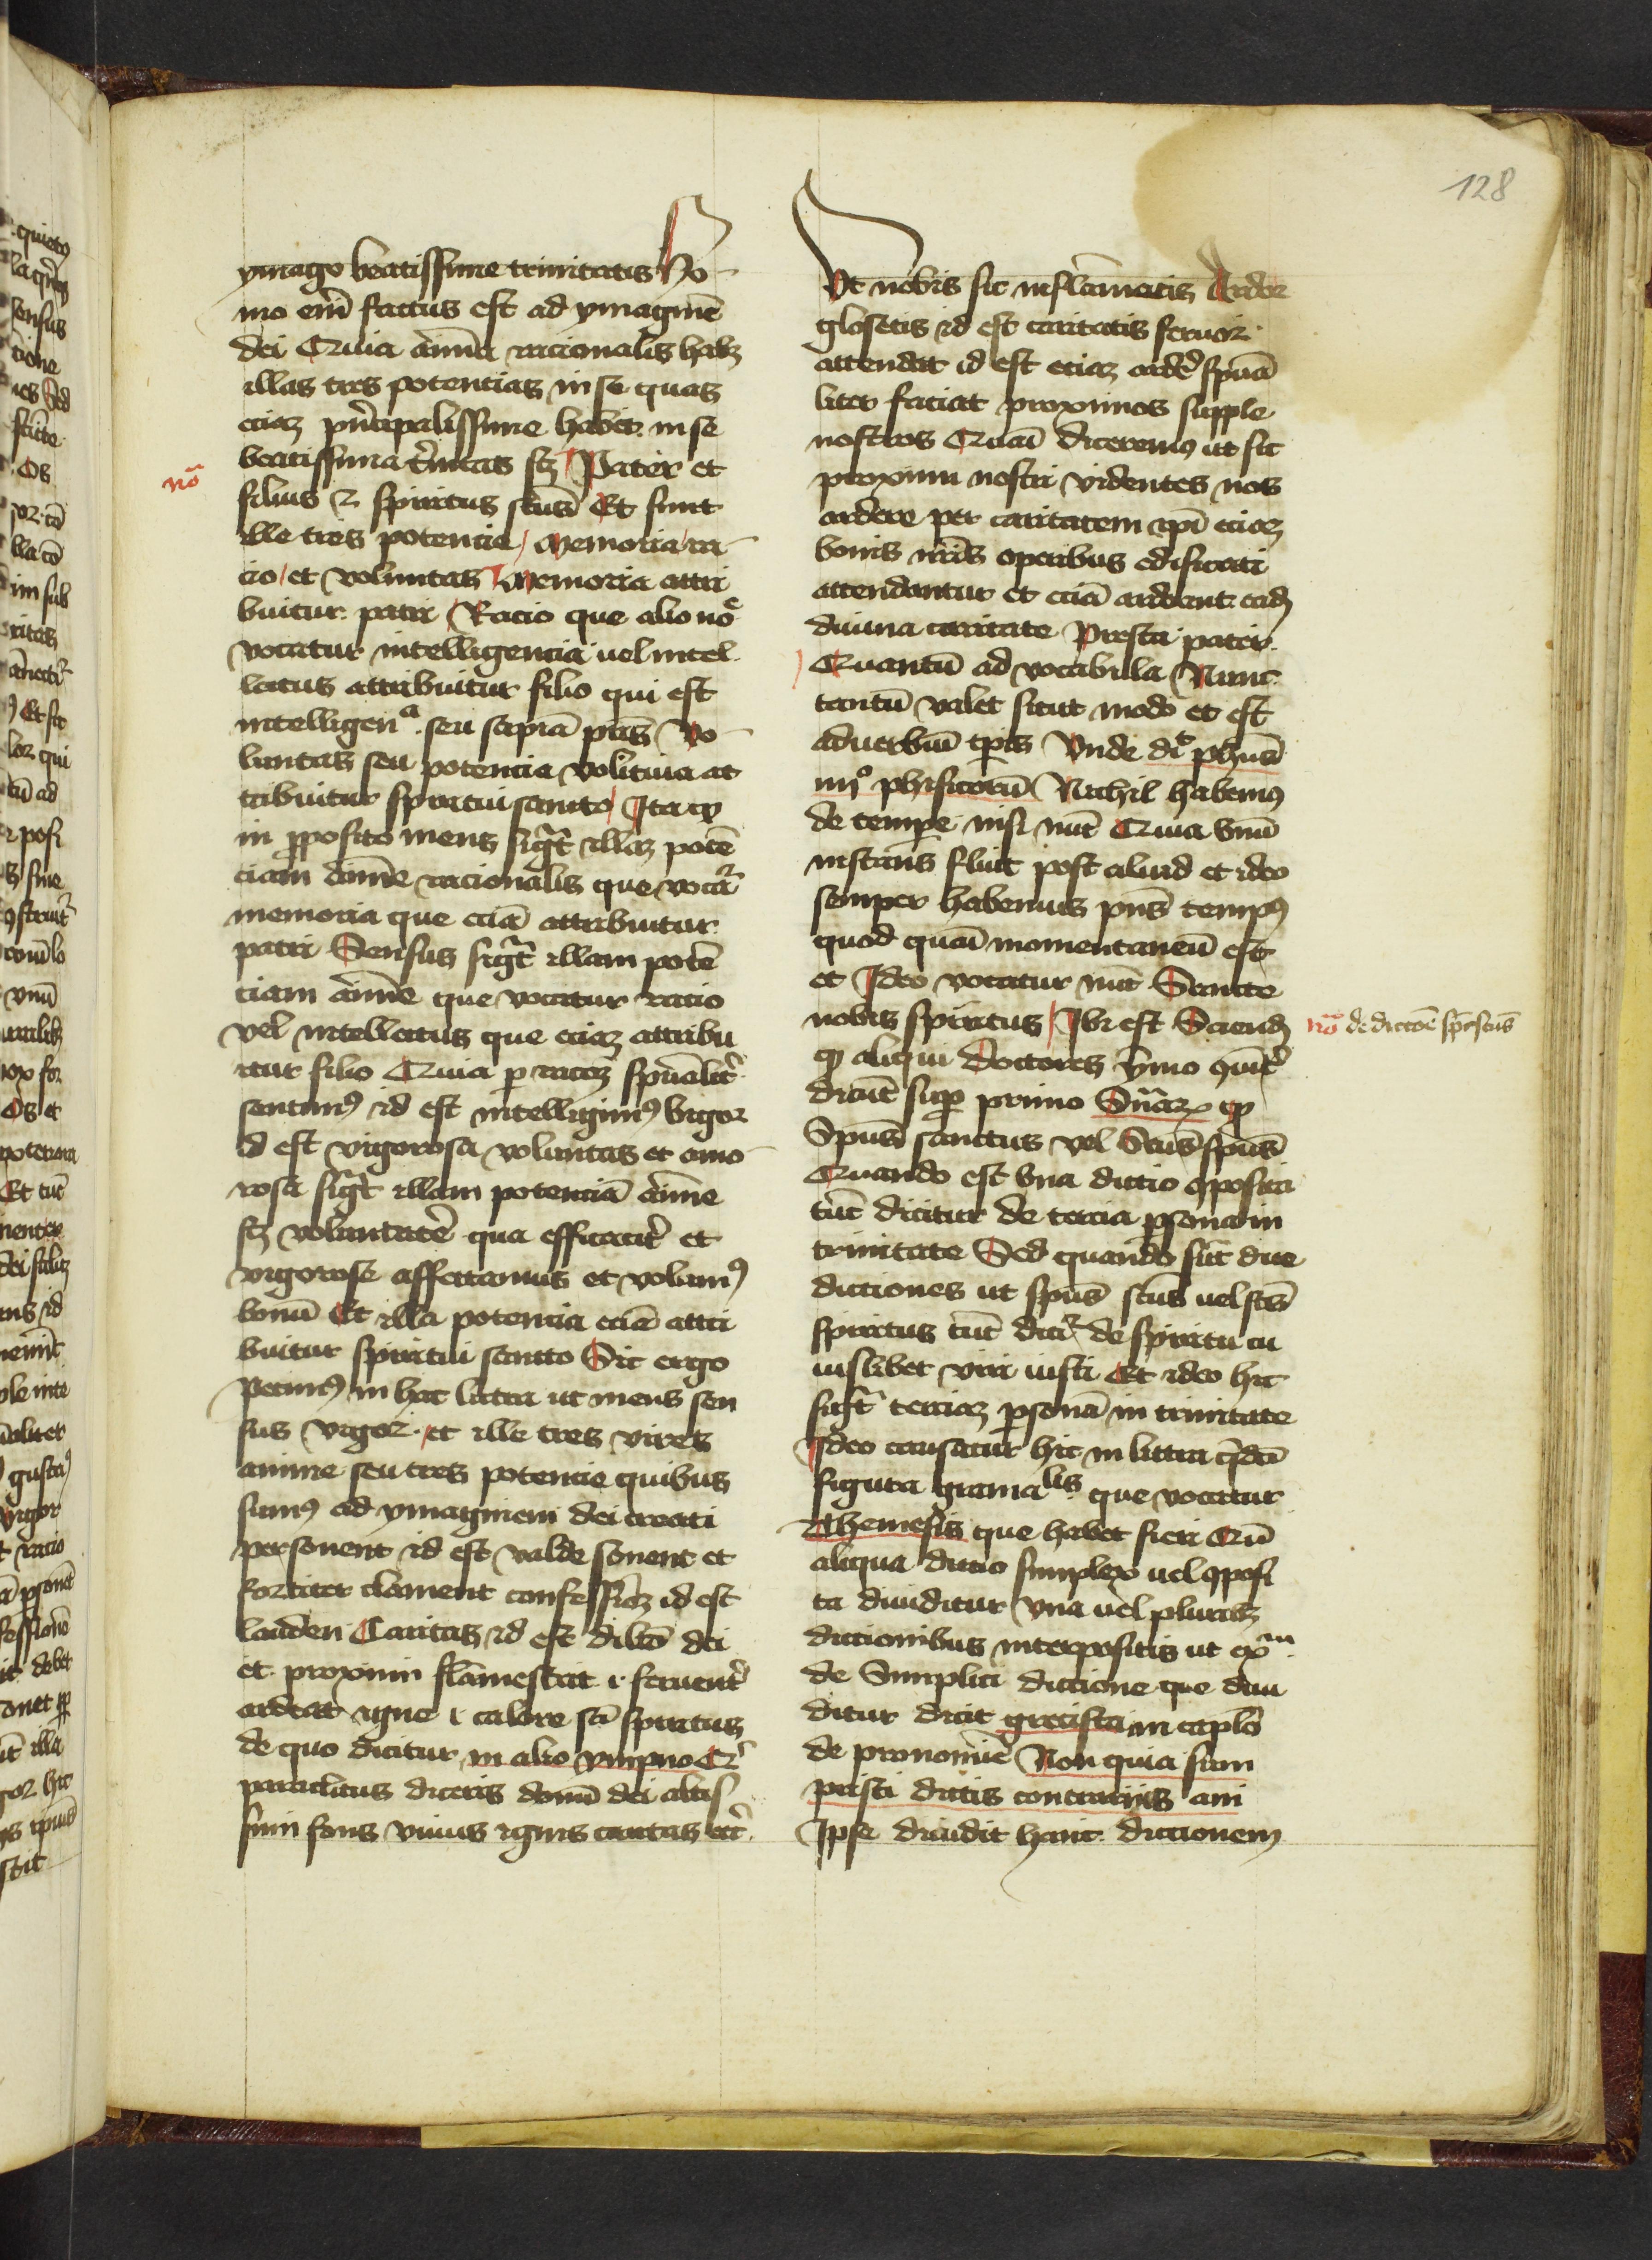 128
ymago beatissime trinitatis Ho
mo em̄ factus est ad ymaginē
dei Quia aīma racionalis habꝫ
illas tres potencias in se quas
eciaꝫ pͥncipalissime habet in se
beatissima tͥnitas sꝫ Pater et
nō
filius et spiritus sctūs Et sunt
ille tres potencie memoria ra
cio et voluntas Memoria attri
buitur patri Racio que alio noͤ
vocatur intelligencia uel intel
lectus attribuitur filio qui est
intelligenᵃ seu sapīa prīs Vo
luntas seu potencia volitiua at
tribuitur spiritui sancto Ita ꝙ
in ꝓposito mens sigͭ illaꝫ potē
ciam aīme racionalis que vocat̉
memoria que eciā attribuitur
patri Sensus sigͭ illam potē
ciam aīme que vocatur racio
vel intellectus que eciaꝫ attribu
itur filio Quia ꝑ racōeꝫ spūalit̉
sentimꝰ id est intelligimꝰ vigor
id est vigorosa voluntas et amo
rosa sigͭ illam potenciā aīme
sꝫ voluntatē qua efficacit̉ et
vigorose affectamus et volumꝰ
bonū Et illa potencia eciā attri
buitur spiritui sancto Sic ergo
petimꝰ in hac littera ut mens sen
sus vigor et ille tres vires
anime seu tres potencie quibus
sumꝰ ad ymaginem dei creati
personent id est valde sonent et
fortiter clament confessioꝫ id est
laudem Caritas id est dilcō dei
et proximi flāmescat .i. feruent̉
ardeat igne .i. calore scī spiritus
de quo dicitur in alio ympno Qͥ
paraclitus diceris donū dei altis
simi fons viuus ignis caritas etc̄
Vt nobis sic inflāmatis Ardor
glosetis id est caritatis feruor
attendat id est eciaꝫ ardē spūa
liter faciat proximos supple
nostros Quasi diceremꝰ ut sic
proximi nostri videntes nos
ardere per caritatem xp̄i eciaꝫ
bonis nr̄is operibus edificati
attendantur et eciā ardeant eadꝫ
diuina caritate Presta pater
Quantū ad vocabula Nunc
tantū valet sicut modo et est
aduerbiū tp̄is Vnde dͥᵗ ph̄us
iiijᵒ phisicorū Nichil habemꝰ
de tempe nisi nūc Quia vnū
instans fluit post aliud et ideo
semper habemus pn̄s tempꝰ
quod quasi momentaneū est
et Ideo vocatur nūc Sancte
nobis spiritus Ibi est Sciendꝫ
nō de dictōe sp̄s sctūs
ꝙ aliqui Doctores ymo cōit̉
dicūt suꝑ primo Sn̄iaꝝ ꝙ
Spūs sanctus vel Sctūs spūs
Quando est vna dictio ꝯposita
tūc dicitur de tercia ꝑsona in
trinitate Sed quando sūt due
dictiones ut spūs sctūs uel sctūs
spiritus tūc dicit̉ de spiritu cu
iuslibet viri iusti Et ideo hic
sigͭ terciaꝫ ꝑsonā in trinitate
Ideo causatur hic in littera q̄dā
figura gramaˡⁱˢ que vocatur
Themesis que habet fieri Cū
aliqua dictio simplex uel ꝯposi
ta diuiditur vna uel pluribꝫ
dictionibus interpositis ut exᵐ
de Simplici dictione que diui
ditur dicit grecista in caplō
de pronomīe Non quia sum
pristi dictis contrarijs ani
Ipse diuidit hanc dictionem